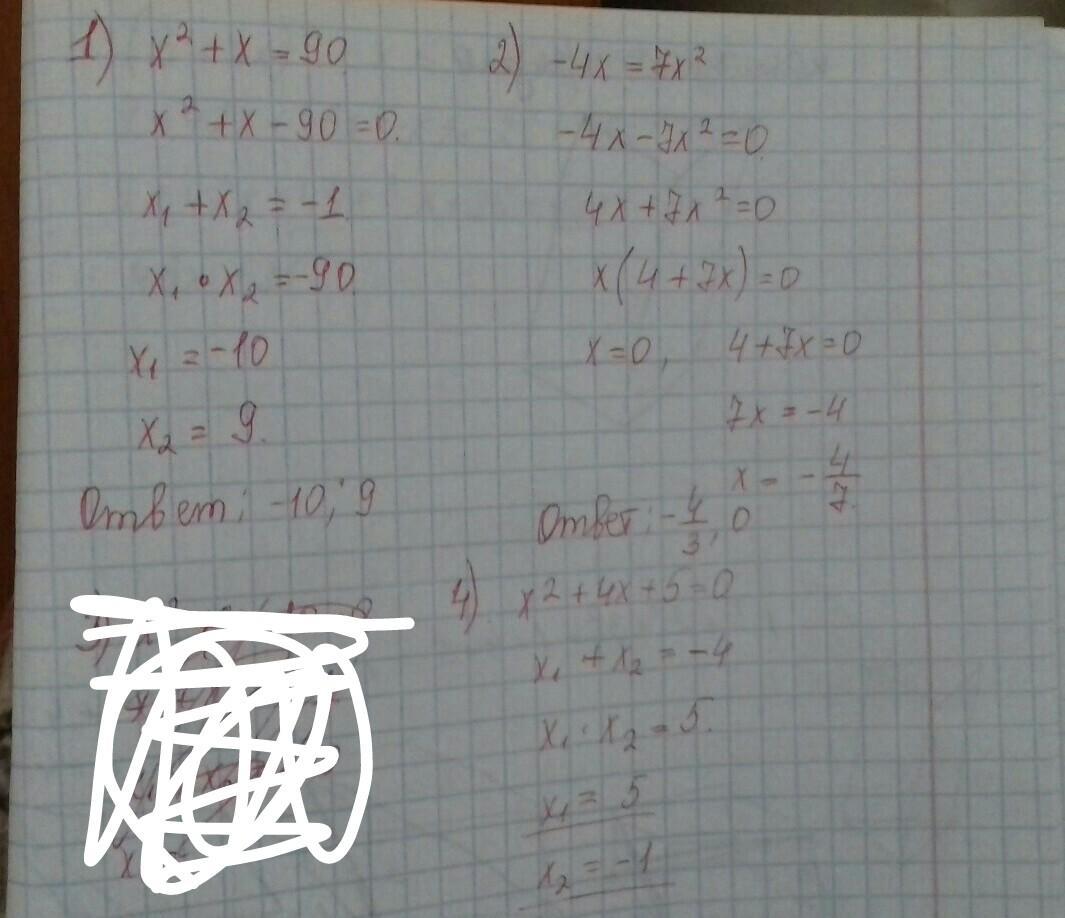 1) x² + x = 90
x² + x - 90 = 0.
x₁ + x₂ = -1
x₁ • x₂ = -90.
x₁ = -10
x₂ = 9.
Ответ: -10; 9
2) -4x = 7x²
-4x - 7x² = 0
4x + 7x² = 0
x(4 + 7x) = 0
x = 0, 4 + 7x = 0
7x = -4
x = -4/7.
Ответ: -4/3, 0
4) x² + 4x + 5 = 0
x₁ + x₂ = -4
x₁ · x₂ = 5.
x₁ = 5
x₂ = -1